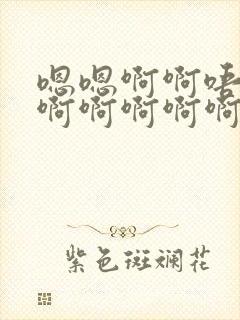 嗯嗯啊啊唔
啊啊啊啊啊
紫色斑斓花